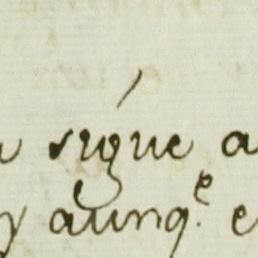 sigue a
y aunq.e e